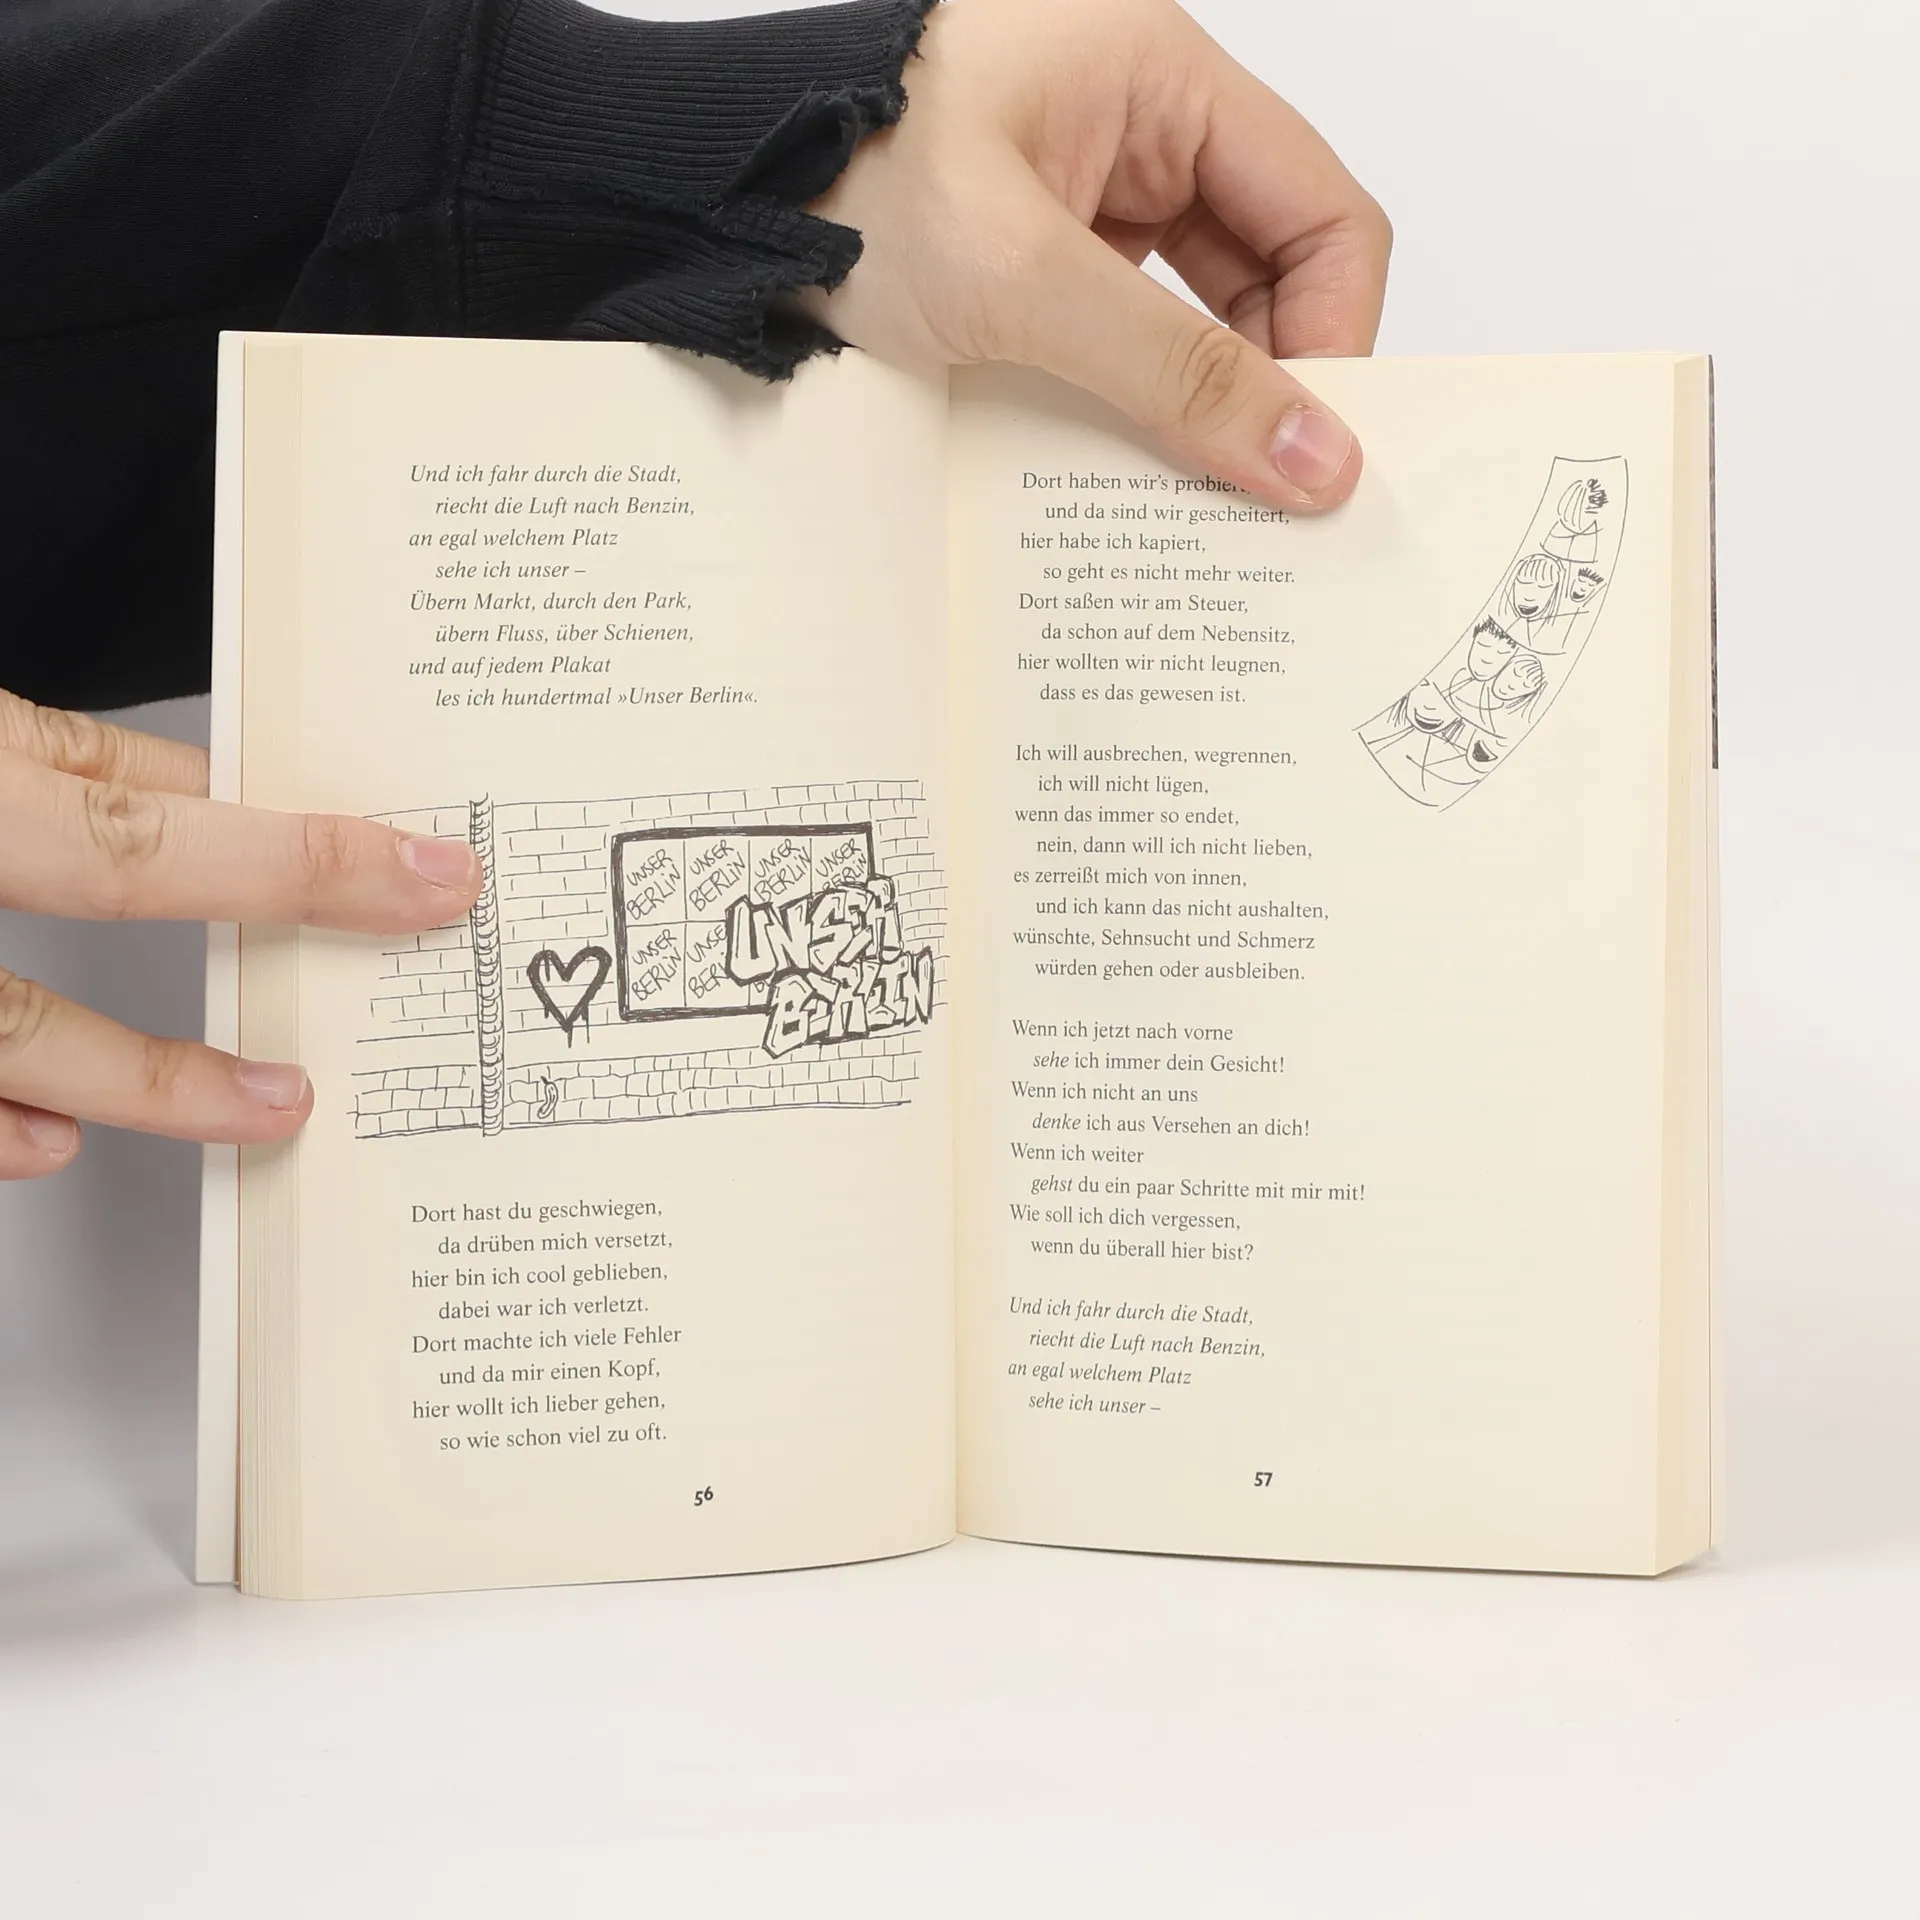 Und ich fahr durch die Stadt,
riecht die Luft nach Benzin,
an egal welchem Platz
sehe ich unser –
Übern Markt, durch den Park,
übern Fluss, über Schienen,
und auf jedem Plakat
les ich hundertmal »Unser Berlin«.
UNSER BERLIN
UNSER BERLIN
UNSER BERLIN
UNSER BERLIN
UNSER BERLIN
UNSER
BERLIN
Dort hast du geschwiegen,
da drüben mich versetzt,
hier bin ich cool geblieben,
dabei war ich verletzt.
Dort machte ich viele Fehler
und da mir einen Kopf,
hier wollt ich lieber gehen,
so wie schon viel zu oft.
56
Dort haben wir's
und da sind wir gescheitert,
hier habe ich kapiert,
so geht es nicht mehr weiter.
Dort saßen wir am Steuer,
da schon auf dem Nebensitz,
hier wollten wir nicht leugnen,
dass es das gewesen ist.
Ich will ausbrechen, wegrennen,
ich will nicht lügen,
wenn das immer so endet,
nein, dann will ich nicht lieben,
es zerreißt mich von innen,
und ich kann das nicht aushalten,
wünschte, Sehnsucht und Schmerz
würden gehen oder ausbleiben.
Wenn ich jetzt nach vorne
sehe ich immer dein Gesicht!
Wenn ich nicht an uns
denke ich aus Versehen an dich!
Wenn ich weiter
gehst du ein paar Schritte mit mir mit!
Wie soll ich dich vergessen,
wenn du überall hier bist?
Und ich fahr durch die Stadt,
riecht die Luft nach Benzin,
an egal welchem Platz
sehe ich unser –
57